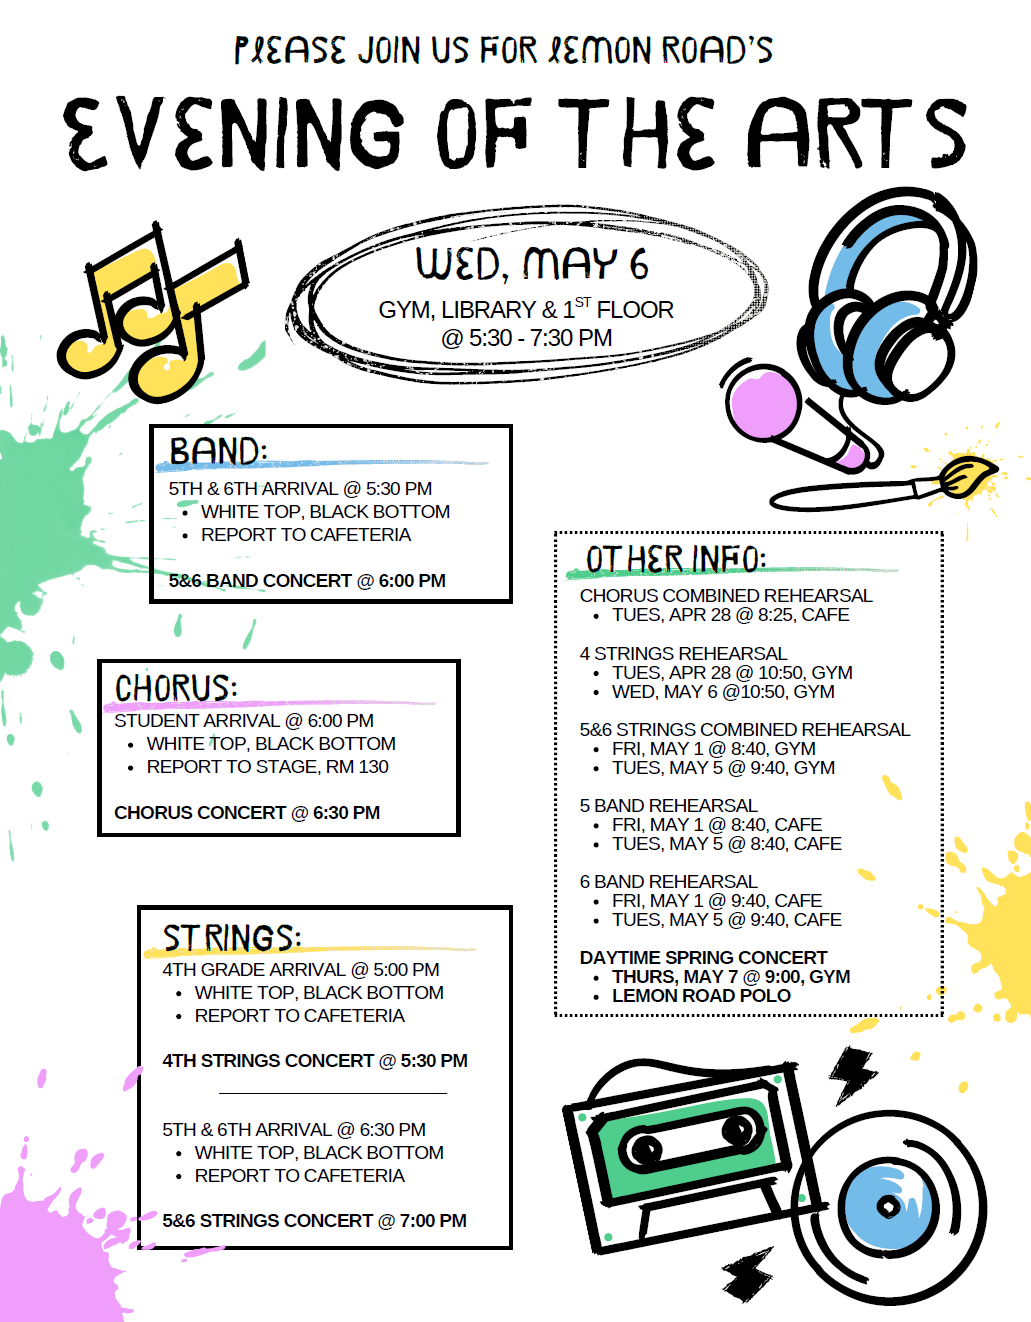 PLEASE JOIN US FOR LEMON ROAD'S
EVENING OF THE ARTS
WED, MAY 6
GYM, LIBRARY & 1ST FLOOR
@ 5:30 - 7:30 PM
BAND:
5TH & 6TH ARRIVAL @ 5:30 PM
• WHITE TOP, BLACK BOTTOM
• REPORT TO CAFETERIA
5&6 BAND CONCERT @ 6:00 PM
CHORUS:
STUDENT ARRIVAL @ 6:00 PM
• WHITE TOP, BLACK BOTTOM
• REPORT TO STAGE, RM 130
CHORUS CONCERT @ 6:30 PM
STRINGS:
4TH GRADE ARRIVAL @ 5:00 PM
• WHITE TOP, BLACK BOTTOM
• REPORT TO CAFETERIA
4TH STRINGS CONCERT @ 5:30 PM
5TH & 6TH ARRIVAL @ 6:30 PM
• WHITE TOP, BLACK BOTTOM
• REPORT TO CAFETERIA
5&6 STRINGS CONCERT @ 7:00 PM
OTHER INFO:
CHORUS COMBINED REHEARSAL
• TUES, APR 28 @ 8:25, CAFE
4 STRINGS REHEARSAL
• TUES, APR 28 @ 10:50, GYM
• WED, MAY 6 @10:50, GYM
5&6 STRINGS COMBINED REHEARSAL
• FRI, MAY 1 @ 8:40, GYM
• TUES, MAY 5 @ 9:40, GYM
5 BAND REHEARSAL
• FRI, MAY 1 @ 8:40, CAFE
• TUES, MAY 5 @ 8:40, CAFE
6 BAND REHEARSAL
• FRI, MAY 1 @ 9:40, CAFE
• TUES, MAY 5 @ 9:40, CAFE
DAYTIME SPRING CONCERT
• THURS, MAY 7 @ 9:00, GYM
• LEMON ROAD POLO